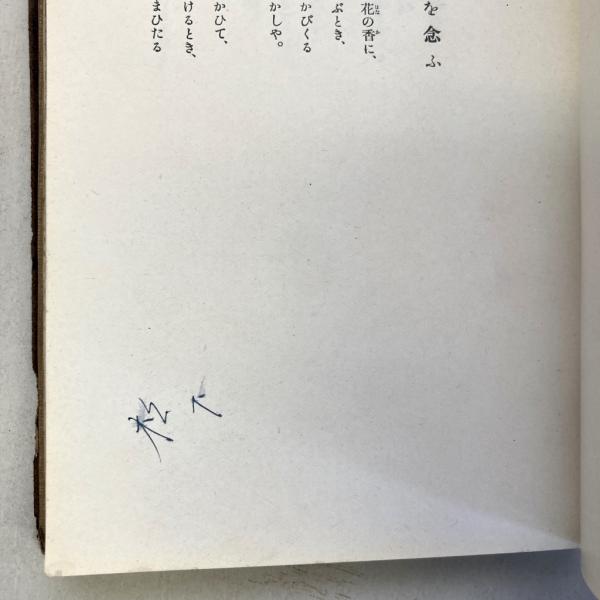 を念ふ
花の香に、
ぶとき、
かびくる
かしや。
かひて、
けるとき、
まひたる